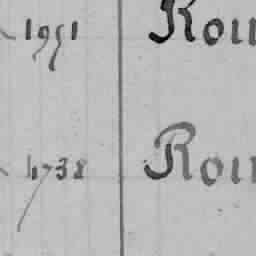 1951 Rou
4738 Rou